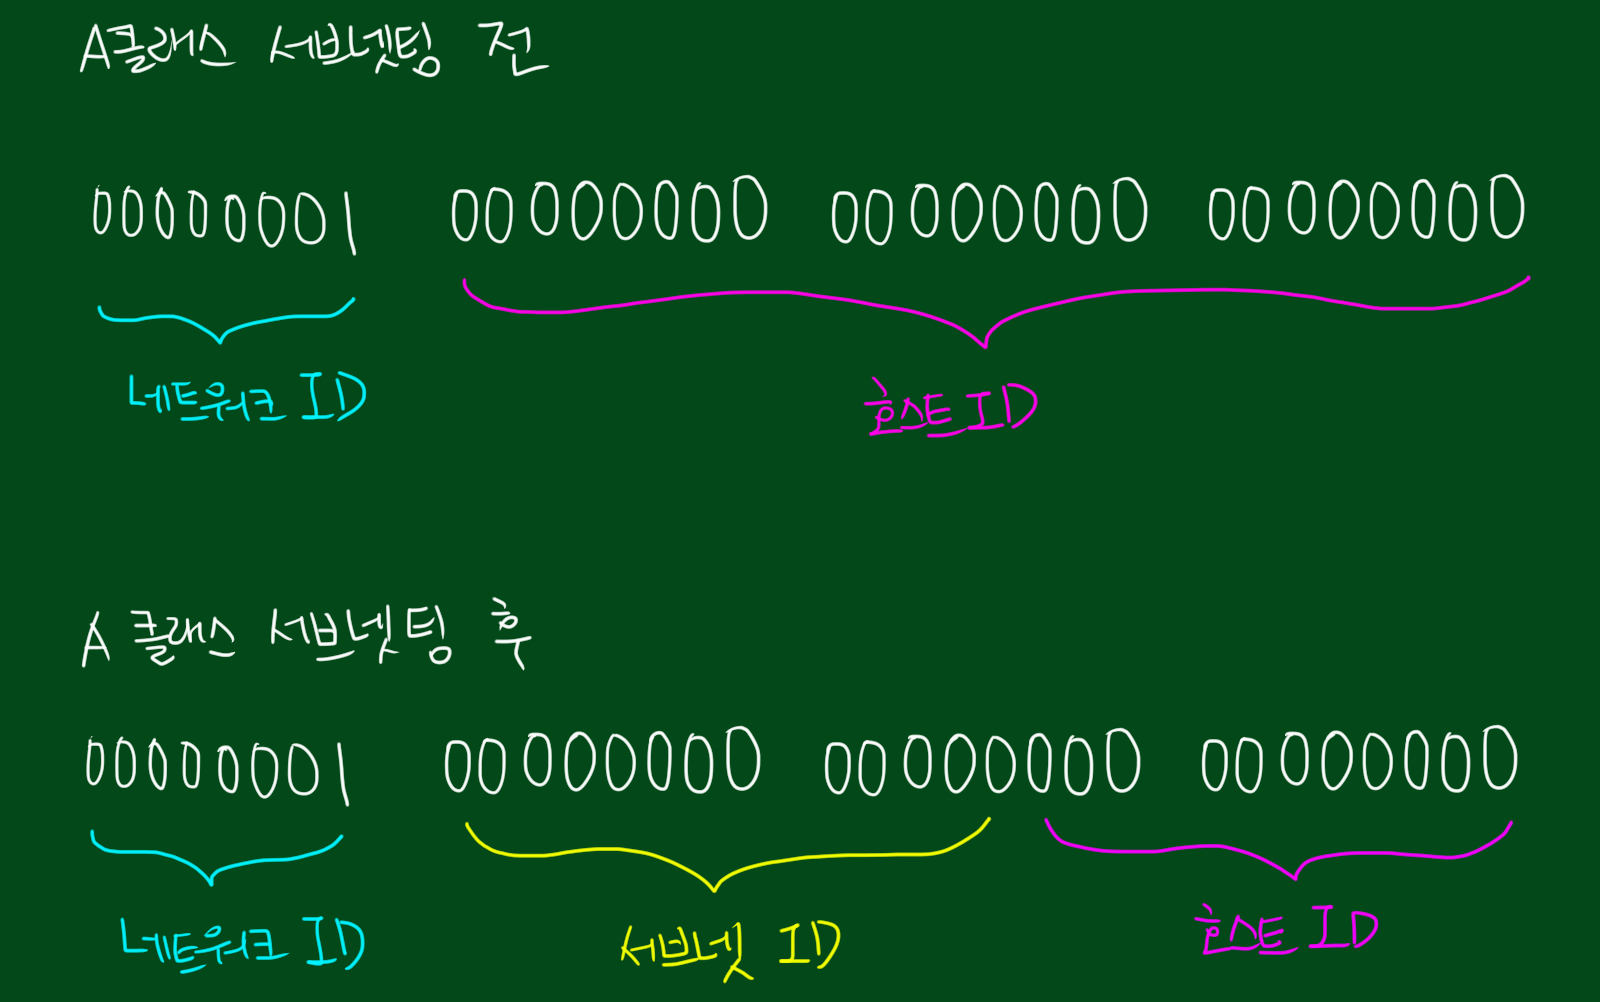 A클래스 서브넷팅 전
00000001 00000000 00000000 00000000
네트워크 ID 호스트 ID
A 클래스 서브넷팅 후
00000001 00000000 00000000 00000000
네트워크 ID 서브넷 ID 호스트 ID